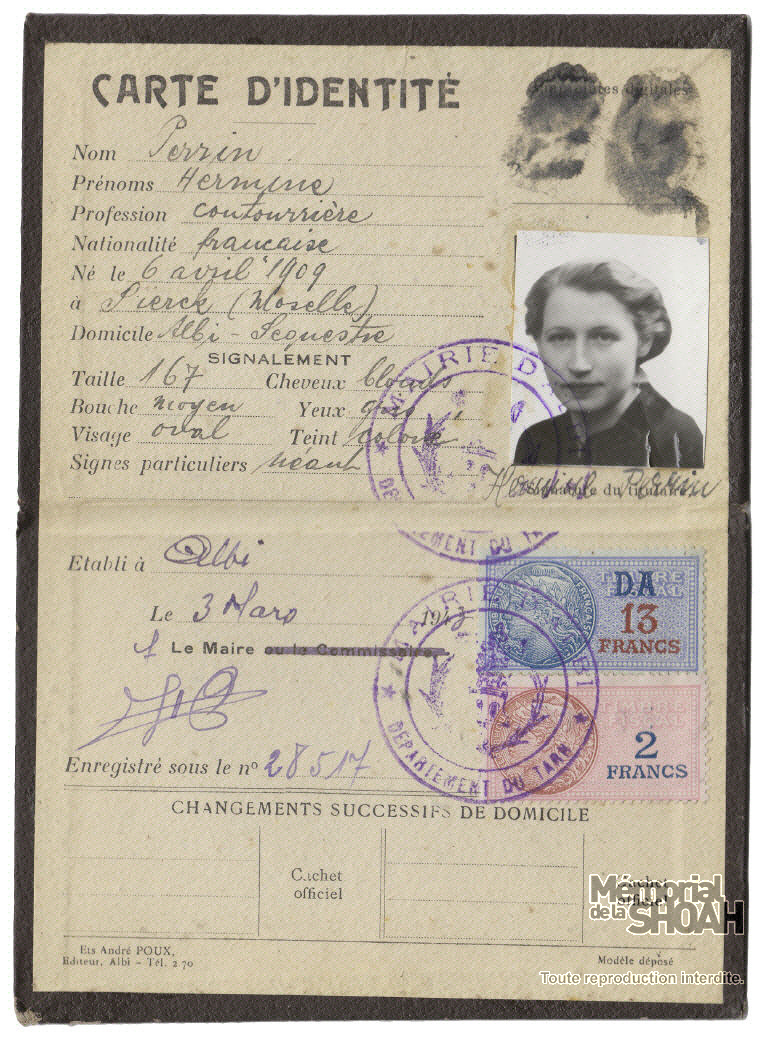 CARTE D'IDENTITÉ
Empreintes digitales
Nom Perrin
Prénoms Hermine
Profession coutourrière
Nationalité francaise
Né le 6 avril 1909
à Sierck (Moselle)
Domicile Albi - Sequestre
SIGNALEMENT
Taille 167 Cheveux blonds
Bouche moyen Yeux gris
Visage oval Teint coloré
Signes particuliers néant
MAIRIE D'ALBI
DEPARTEMENT DU TARN
Signature du titulaire
Hermine Perrin
Etabli à Albi
Le 3 Mars 1943
Le Maire ou le Commissaire
MAIRIE D'ALBI
DEPARTEMENT DU TARN
TIMBRE FISCAL
DA
13
FRANCS
TIMBRE FISCAL
2
FRANCS
Enregistré sous le nº 28517
CHANGEMENTS SUCCESSIFS DE DOMICILE
Cachet officiel
Cachet officiel
Ets André POUX,
Editeur, Albi - Tél. 2.70
Modèle déposé
Mémorial de la SHOAH
Toute reproduction interdite.